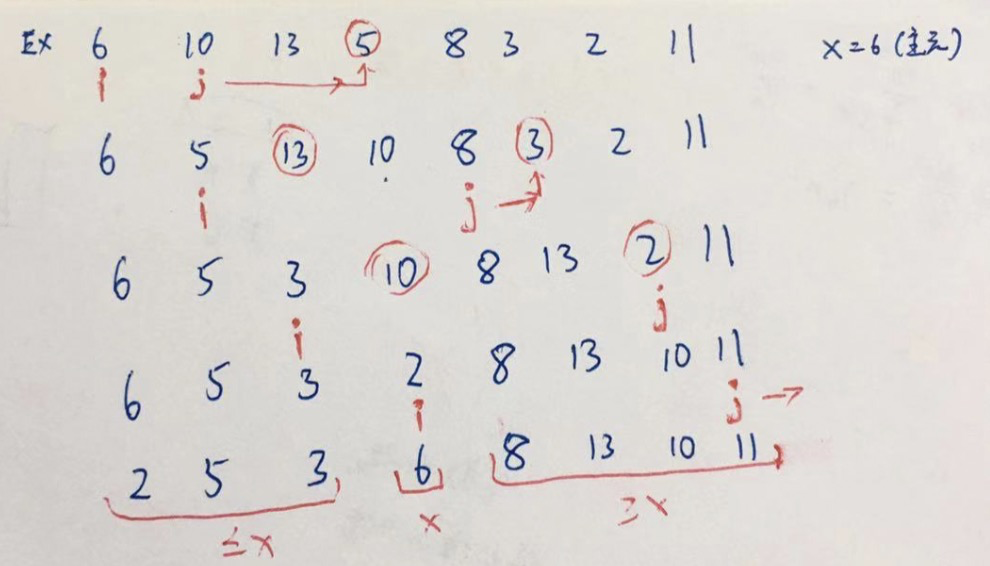 Ex 6 10 13 5 8 3 2 11 x=6 (主元)
i j
6 5 13 10 8 3 2 11
i j
6 5 3 10 8 13 2 11
i j
6 5 3 2 8 13 10 11
i j
2 5 3 6 8 13 10 11
≤x x ≥x